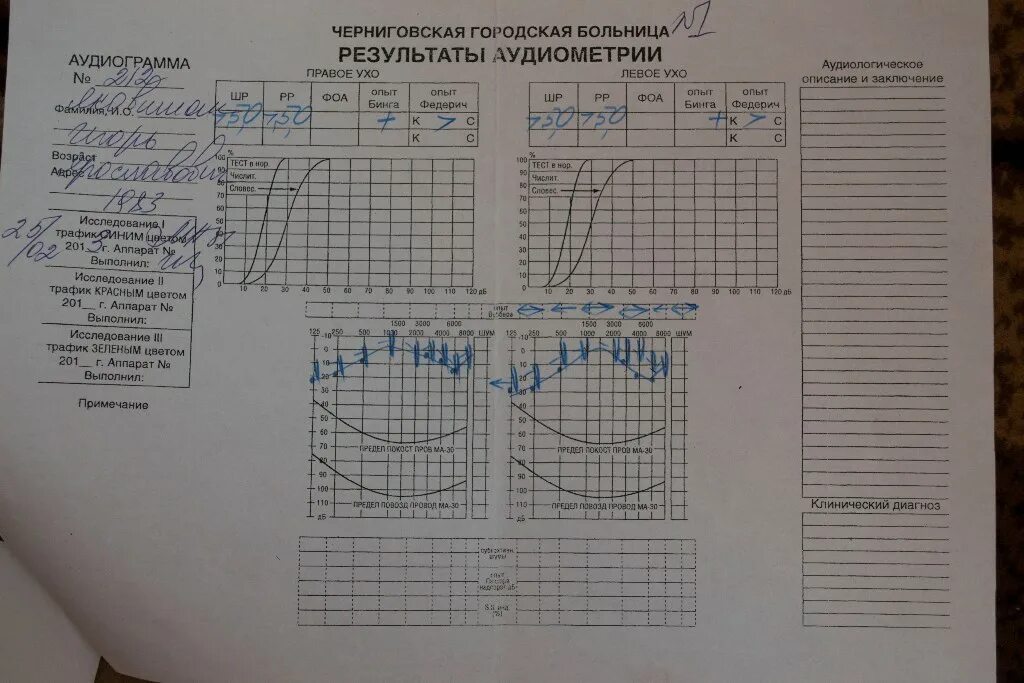 ЧЕРНИГОВСКАЯ ГОРОДСКАЯ БОЛЬНИЦА №1
РЕЗУЛЬТАТЫ АУДИОМЕТРИИ
АУДИОГРАММА
№
Фамилия, И.О.
Игорь
Возраст
Адрес
1983
Исследование I
график СИНИМ цветом
2013 г. Аппарат №
Выполнил:
25/02
Исследование II
трафик КРАСНЫМ цветом
201__ г. Аппарат №
Выполнил:
Исследование III
трафик ЗЕЛЕНЫМ цветом
201__ г. Аппарат №
Выполнил:
Примечание
ПРАВОЕ УХО
ШР РР ФОА опыт Бинга опыт Федерич
+ К > С
К С
ЛЕВОЕ УХО
ШР РР ФОА опыт Бинга опыт Федерич
+ К > С
К С
%
100
90
80
70
60
50
40
30
20
10
0
ТЕСТ в нор.
Числит.
Словес.
10 20 30 40 50 60 70 80 90 100 110 120 дБ
%
100
90
80
70
60
50
40
30
20
10
0
ТЕСТ в нор.
Числит.
Словес.
10 20 30 40 50 60 70 80 90 100 110 120 дБ
опыт
1500 3000 6000
125 250 500 1000 2000 4000 8000 ШУМ
-10
0
10
20
30
40
50
60
70
80
90
100
110
дБ
ПРЕДЕЛ ПОКОСТ ПРОВ МА-30
ПРЕДЕЛ ПОВОЗД ПРОВОД МА-30
1500 3000 6000
125 250 500 1000 2000 4000 8000 ШУМ
-10
0
10
20
30
40
50
60
70
80
90
100
110
дБ
ПРЕДЕЛ ПОКОСТ ПРОВ МА-30
ПРЕДЕЛ ПОВОЗД ПРОВОД МА-30
шумы
опыт
Аудиологическое
описание и заключение
Клинический диагноз